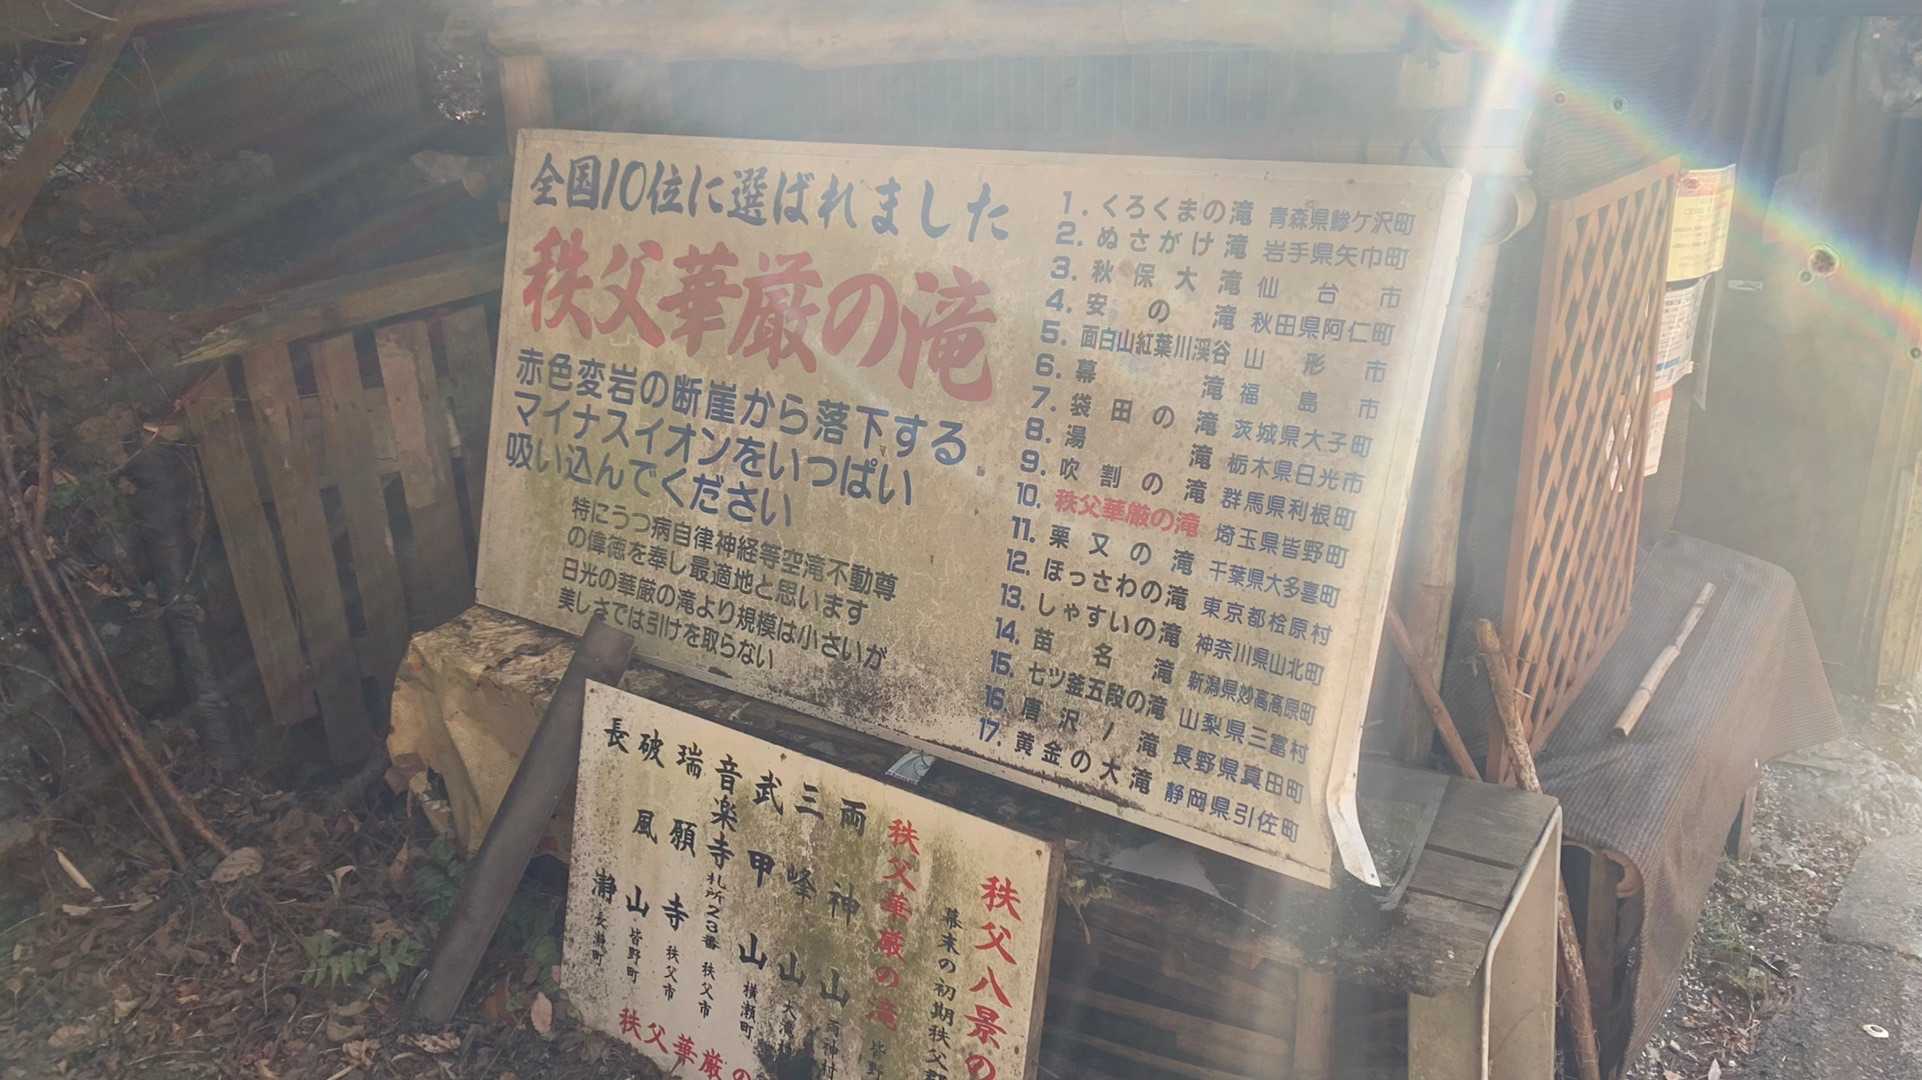 全国10位に選ばれました
秩父華厳の滝
赤色変岩の断崖から落下する
マイナスイオンをいっぱい
吸い込んでください
特にうつ病自律神経等空滝不動尊
の偉徳を奉し最適地と思います
日光の華厳の滝より規模は小さいが
美しさでは引けを取らない
1. くろくまの滝 青森県鰺ケ沢町
2. ぬさがけ滝 岩手県矢巾町
3. 秋保大滝 仙台市
4. 安の滝 秋田県阿仁町
5. 面白山紅葉川渓谷 山形市
6. 幕滝 福島市
7. 袋田の滝 茨城県大子町
8. 湯滝 栃木県日光市
9. 吹割の滝 群馬県利根町
10. 秩父華厳の滝 埼玉県皆野町
11. 栗又の滝 千葉県大多喜町
12. ほっさわの滝 東京都桧原村
13. しゃすいの滝 神奈川県山北町
14. 苗名滝 新潟県妙高高原町
15. 七ツ釜五段の滝 山梨県三富村
16. 唐沢ノ滝 長野県真田町
17. 黄金の大滝 静岡県引佐町
秩父八景の
幕末の初期秩父
秩父華厳の滝 皆野
両神山 両神村
三峰山 大滝
武甲山 横瀬町
音楽寺 札所23番 秩父市
瑞願寺 秩父市
破風山 皆野町
長瀞 長瀞町
秩父華厳の